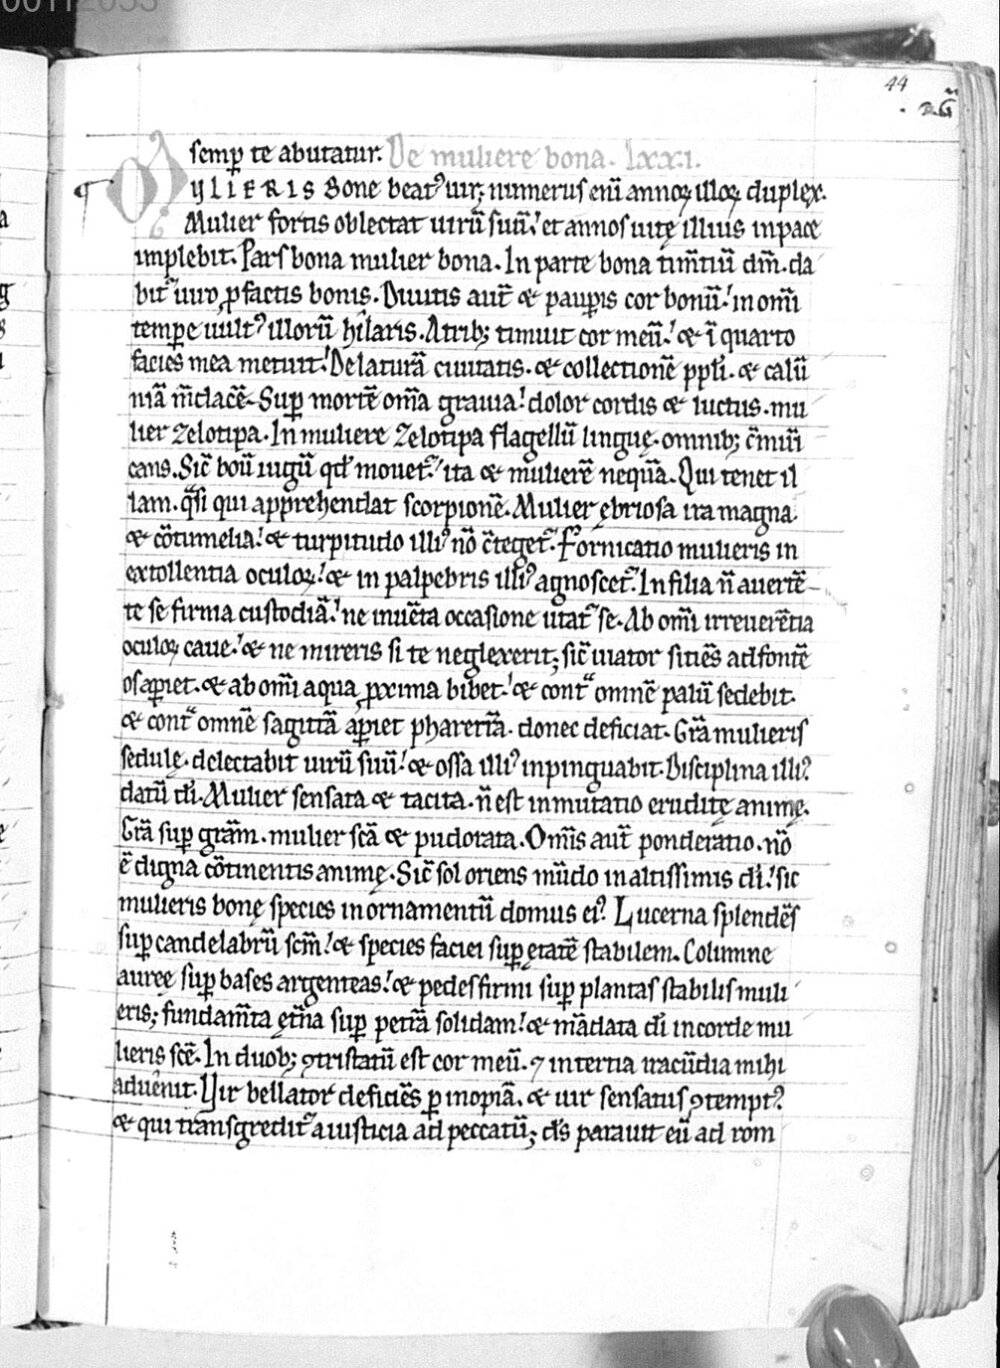 00112053
44
semꝑ te abutatur. De muliere bona. lxxi.
MVLIERIS Bone beatꝰ uir; numerus eni᷑ annoꝝ illoꝝ duplex.
Mulier fortis oblectat uirū suū! et annos uitę illius inpace
implebit. Pars bona mulier bona. In parte bona tim̄tiū dm̄. da
bit᷑ uiro ꝓ factis bonis. Diuitis aut̄ & pauꝑis cor bonū! in om̄i
temꝑe uultꝰ illorū hilaris. A trib; timuit cor meū! & ī quarto
facies mea metuit! Delaturā ciuitatis. & collectionē ppl̄i. & calū
niā m̄dacē. Suꝑ mortē om̄a grauia! dolor cordis & luctus. mu
lier zelotipa. In muliere zelotipa flagellū linguę. omnib; c̄mūi
cans. Sic̄ boū iugū qd̄ mouet᷑! ita & mulierē nequā. Qui tenet il
lam. q̄si qui apprehendat scorpionē. Mulier ębriosa ira magna.
& cōtumelia! & turpitudo illiꝰ nō c̄teget᷑. Fornicatio mulieris in
extollentia oculoꝝ! & in palpebris illiꝰ agnoscet᷑. In filia n̄ auertē
te se firma custodiā! ne inuēta occasione utat᷑ se. Ab om̄i irreuerētia
oculoꝝ caue! & ne mireris si te neglexerit; sic̄ uiator sitiēs ad fontē
os aꝑiet. & ab om̄i aqua ꝓxima bibet! & contᵃ omnē palū sedebit.
& contᵃ omnē sagittā aꝑiet pharetrā. donec deficiat. Gr̄a mulieris
sedulę. delectabit uirū suū! & ossa illiꝰ inpinguabit. Disciplina illiꝰ
datū dī. Mulier sensata & tacita. n̄ est inmutatio eruditę animę.
Gr̄a suꝑ gr̄am. mulier sc̄a & pudorata. Om̄is aut̄ ponderatio. nō
ē digna cōtinentis animę. Sic̄ sol oriens mūdo in altissimis dī! sic
mulieris bonę species in ornamentū domus eiꝰ. Lucerna splendēs
suꝑ candelabrū scm̄! & species faciei suꝑ ętatē stabilem. Columne
aureę suꝑ bases argenteas! & pedes firmi suꝑ plantas stabilis muli
eris; fundam̄ta ęt̄na suꝑ petrā solidam! & mādata dī in corde mu
lieris scē. In duob; ꝯtristatū est cor meū. ⁊ in tertia iracūdia mihi
aduenit. Vir bellator deficiēs ꝑ inopiā. & uir sensatus ꝯtemptꝰ.
& qui transgredit᷑ a iusticia ad peccatū; ds̄ parauit eū ad rom